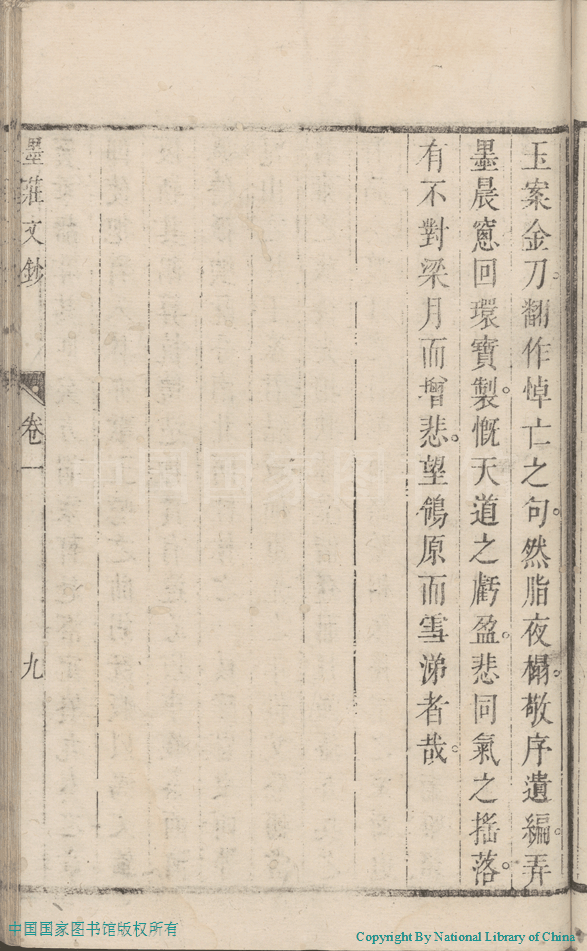 玉案金刀。翻作悼亡之句。然脂夜榻。敬序遺編。弄
墨晨窻回環寶製。慨天道之虧盈。悲同氣之搖落。
有不對梁月而增悲。望鴒原而雪涕者哉。
墨莊文鈔
卷一
九
中国国家图书馆版权所有
Copyright By National Library of China